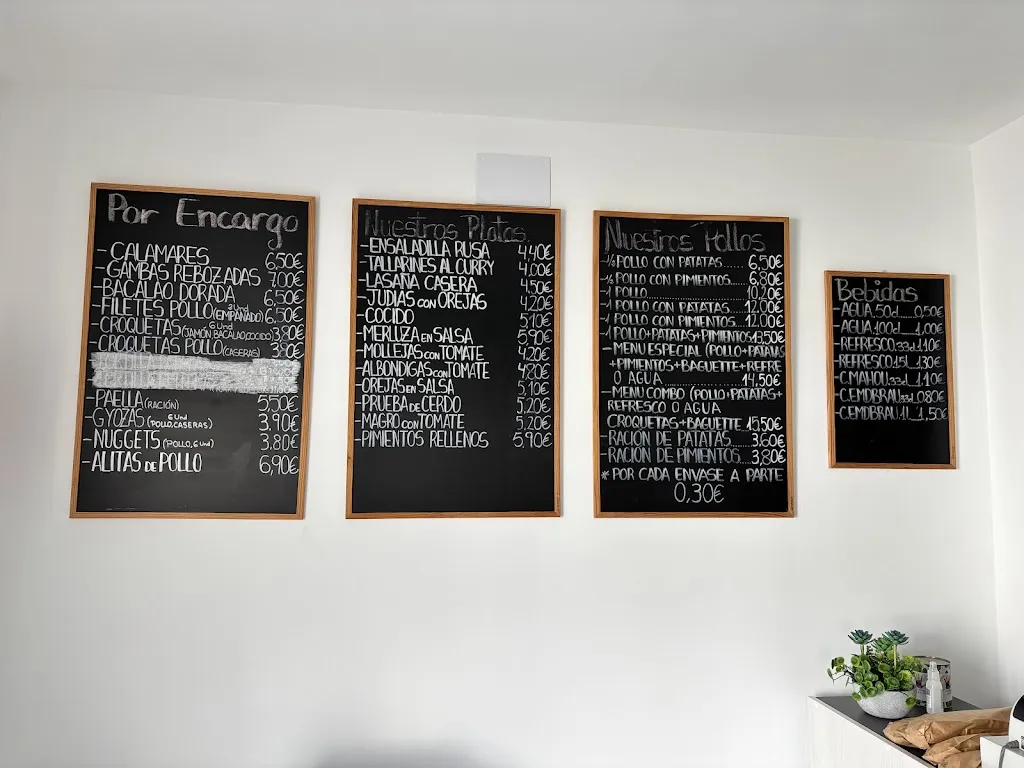 Por Encargo
-CALAMARES 6,50€
-GAMBAS REBOZADAS 7,00€
-BACALAO DORADA 6,50€
-FILETES POLLO (EMPANADO) 6,50€
-CROQUETAS 6 Und (JAMÓN, BACALAO, COCIDO) 3,80€
-CROQUETAS POLLO (CASERAS) 3,80€
-PAELLA (RACIÓN) 5,50€
-GYOZAS 6 Und (POLLO, CASERAS) 3,90€
-NUGGETS (POLLO, 6 Und) 3,80€
-ALITAS DE POLLO 6,90€
Nuestros Platos
-ENSALADILLA RUSA 4,40€
-TALLARINES AL CURRY 4,00€
-LASAÑA CASERA 4,50€
-JUDIAS con OREJAS 4,20€
-COCIDO 5,10€
-MERLUZA EN SALSA 5,90€
-MOLLEJAS con TOMATE 4,20€
-ALBONDIGAS con TOMATE 4,80€
-OREJAS EN SALSA 5,10€
-PRUEBA DE CERDO 5,20€
-MAGRO con TOMATE 5,20€
-PIMIENTOS RELLENOS 5,90€
Nuestros Pollos
-½ POLLO CON PATATAS..... 6,50€
-½ POLLO CON PIMIENTOS... 6,80€
-1 POLLO............... 10,20€
-1 POLLO CON PATATAS.... 11,50€
-1 POLLO CON PIMIENTOS.. 12,00€
-1 POLLO+PATATAS+PIMIENTOS 13,50€
-MENU ESPECIAL (POLLO+PATATAS
+PIMIENTOS+BAGUETTE+REFRE
O AGUA 14,50€
-MENU COMBO (POLLO+PATATAS+
REFRESCO O AGUA
CROQUETAS+BAGUETTE 15,50€
-RACIÓN DE PATATAS... 3,60€
-RACIÓN DE PIMIENTOS... 3,80€
* POR CADA ENVASE A PARTE
0,30€
Bebidas
-AGUA 50cl... 0,50€
-AGUA 100cl.. 1,00€
-REFRESCO 33cl 1,10€
-REFRESCO 1,5l. 1,30€
-C.MAHOU 33cl. 1,10€
-C.EMDBRAU 33cl 0,80€
-C.EMDBRAU 1l.. 1,50€